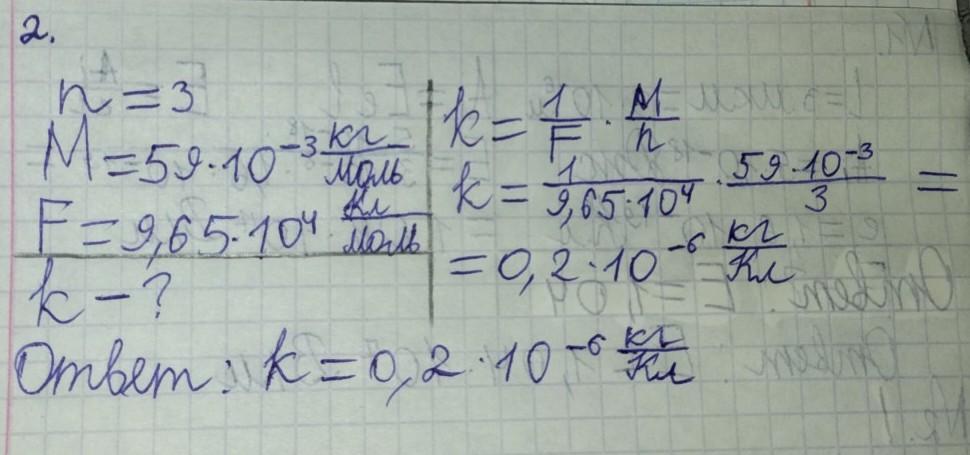 2.
n = 3
M = 59·10⁻³ кг/моль
F = 9,65·10⁴ Кл/моль
k – ?
k = 1/F · M/n
k = 1/9,65·10⁴ · 59·10⁻³/3 =
= 0,2·10⁻⁶ кг/Кл
Ответ: k = 0,2·10⁻⁶ кг/Кл